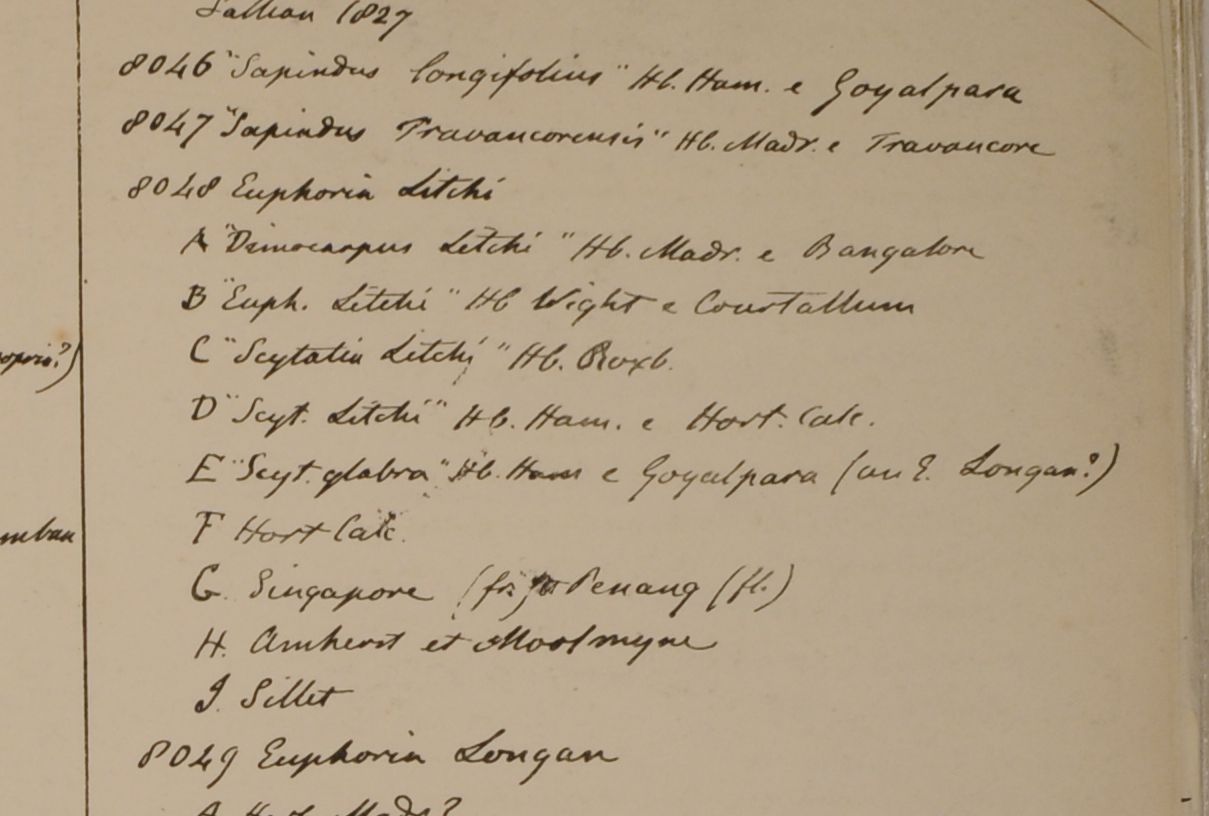 1827
8046 "Sapindus longifolius" Hb. Ham. e Goyalpara
8047 "Sapindus Travancorensis" Hb. Madr. e Travancore
8048 Euphoria Litchi
A "Dimocarpus Litchi" Hb. Madr. e Bangalore
B "Euph. Litchi" Hb Wight e Courtallum
C "Scytalia Litchi" Hb. Roxb.
D "Scyt. Litchi" Hb. Ham. e Hort. Calc.
E "Scyt. glabra" Hb. Ham e Goyalpara (an E. Longan?)
F Hort Calc.
G. Singapore (fr.) et Penang (fl.)
H. Amherst et Moolmyne
I. Sillet
8049 Euphoria Longan